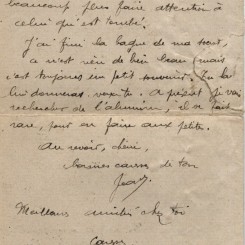 beaucoup plus faire attention à
celui qu'est tombé.
J'ai fini la bague de ma sœur,
ce n'est rien de bien beau (mais
c'est toujours un petit souvenir. Tu la
lui donneras, vexite. A présent je vais
rechercher de l'aluminium, il se fait
rare, pour en faire aux petites.
Au revoir, chéri,
bonnes causses de ton
Jean
Meilleurs amitiés chez toi
Causses